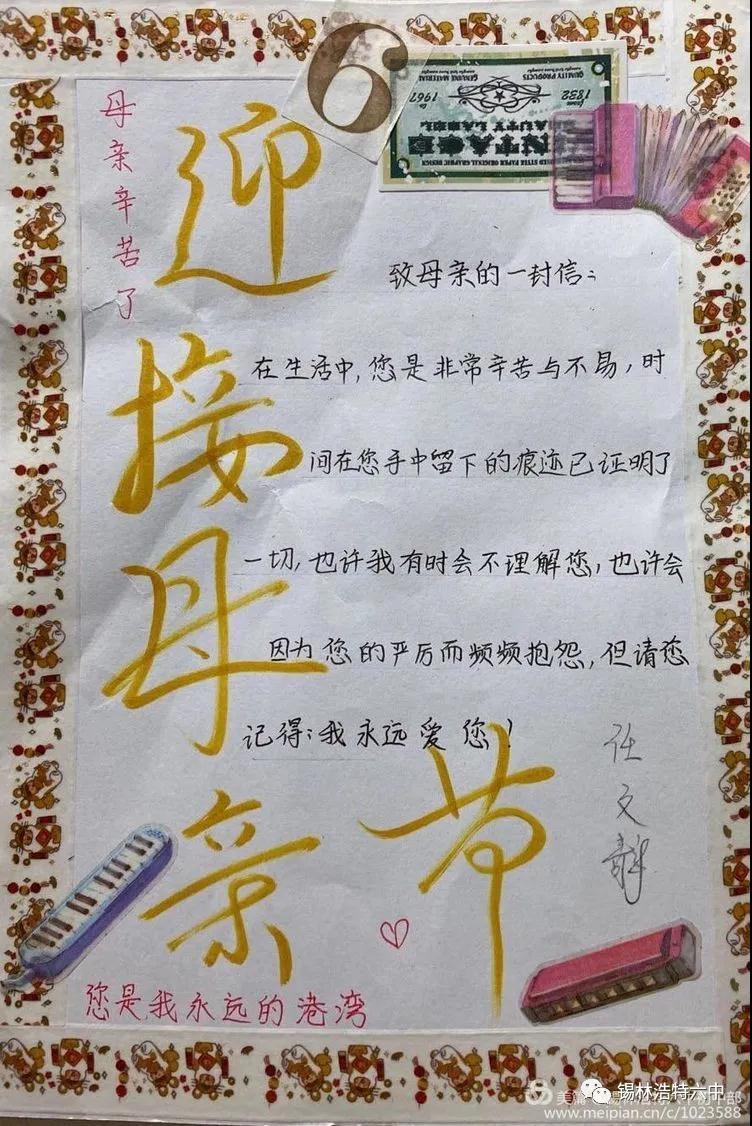 6
QUALITY PRODUCTS
GENUINE MATERIAL
1832
1967
母亲辛苦了
迎接母亲节
致母亲的一封信:
在生活中,您是非常辛苦与不易,时
间在您手中留下的痕迹已证明了
一切,也许我有时会不理解您,也许会
因为您的严厉而频频抱怨,但请您
记得:我永远爱您!
任文静
您是我永远的港湾
锡林浩特六中
www.meipian.cn/c/1023588